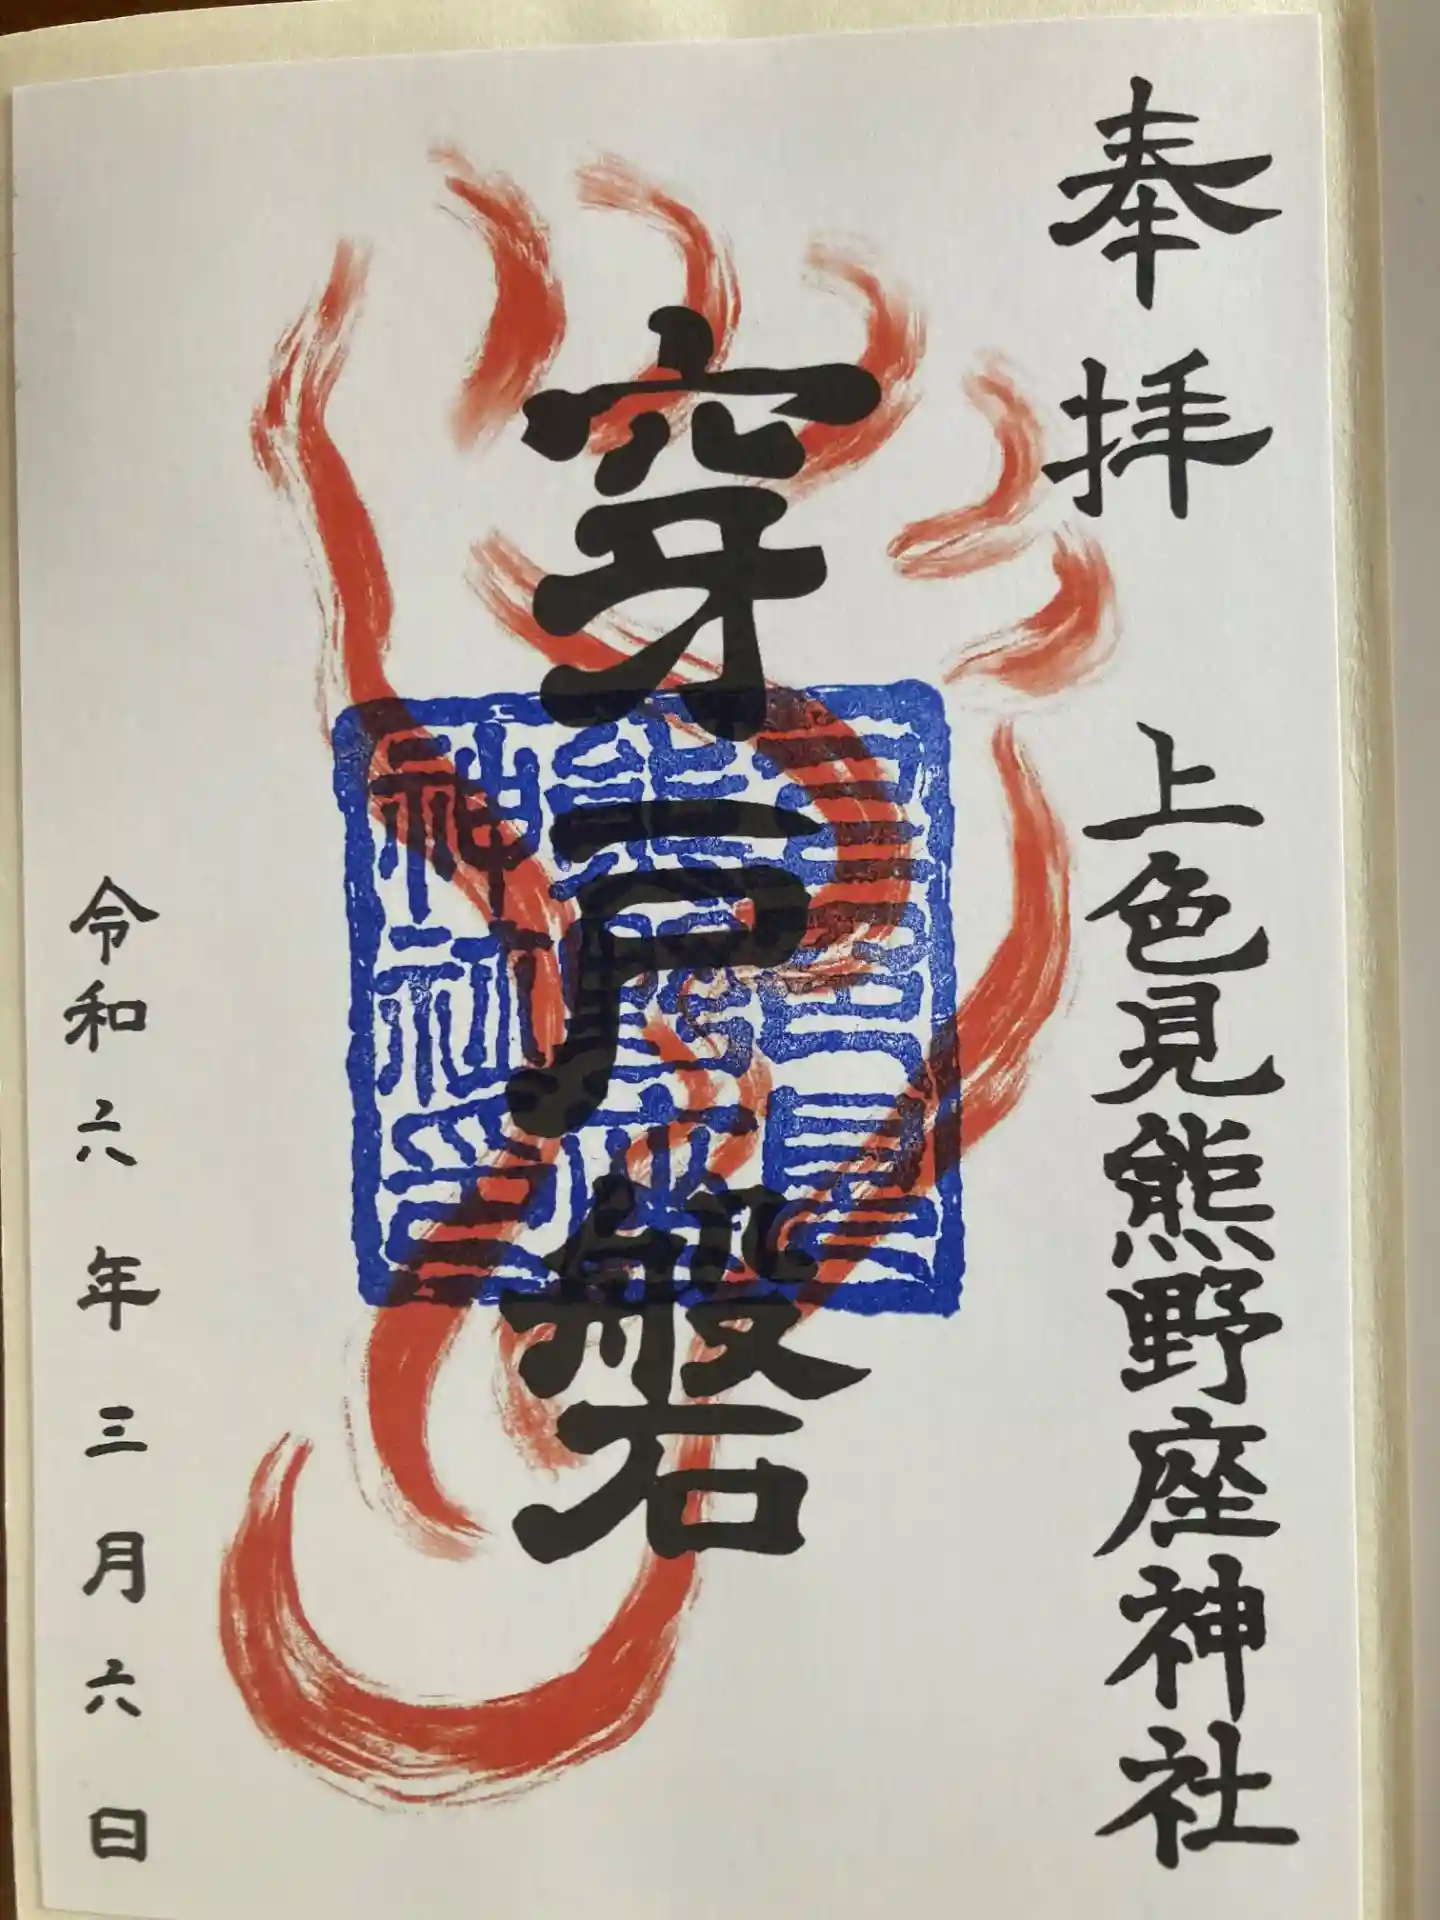 奉拝
上色見熊野座神社
穿戸磐石
上色見
熊野座
神社印
令和六年三月六日